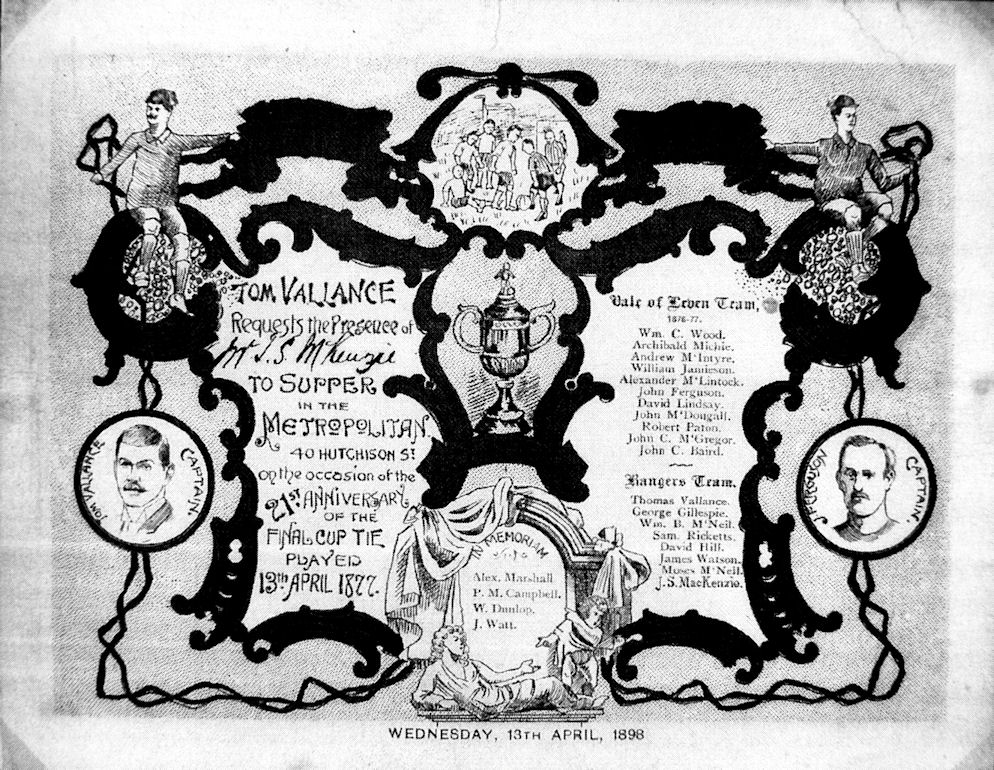 TOM VALLANCE
Requests the Presence of
Mr J. S. McKenzie
TO SUPPER
IN THE
METROPOLITAN.
40 HUTCHISON ST
on the occasion of the
21ST ANNIVERSARY
OF THE
FINAL CUP TIE
PLAYED
13TH APRIL 1877.
TOM VALLANCE CAPTAIN
IN MEMORIAM
Alex. Marshall.
P. M. Campbell.
W. Dunlop.
J. Watt.
Vale of Leven Team,
1876-77.
Wm. C. Wood.
Archibald Michie.
Andrew M'Intyre.
William Jamieson.
Alexander M'Lintock.
John Ferguson.
David Lindsay.
John M'Dougall.
Robert Paton.
John C. M'Gregor.
John C. Baird.
Rangers Team.
Thomas Vallance.
George Gillespie.
Wm. B. M'Neil.
Sam. Ricketts.
David Hill.
James Watson.
Moses M'Neil.
J. S. MacKenzie.
J FERGUSON CAPTAIN.
WEDNESDAY, 13TH APRIL, 1898